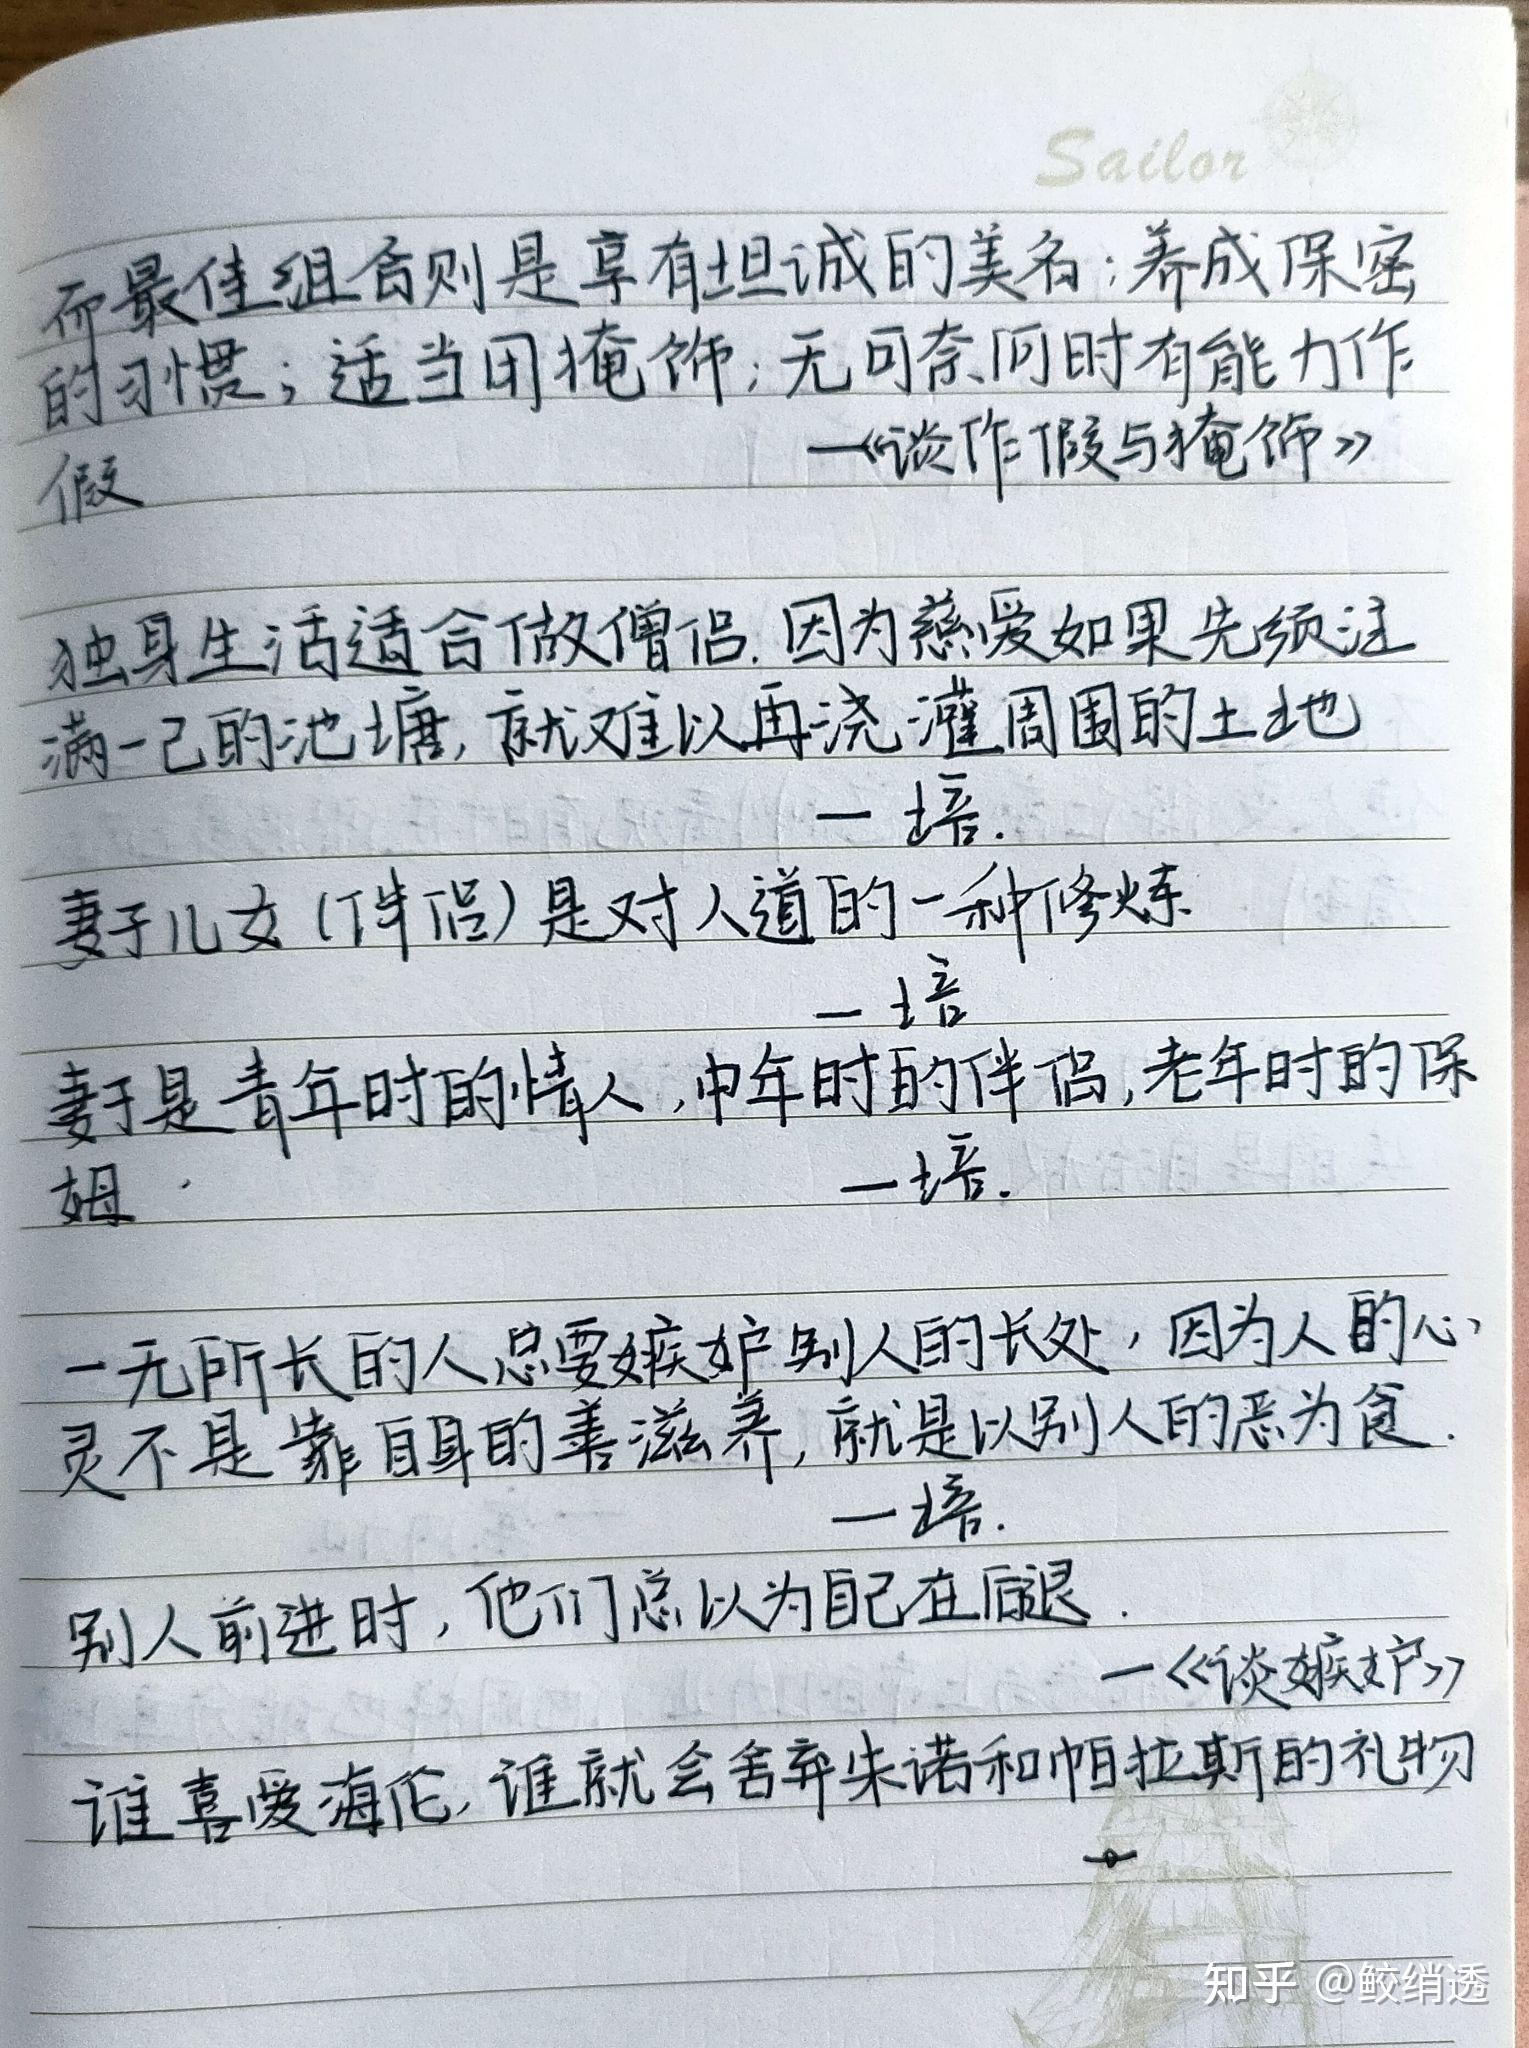 Sailor
而最佳组合则是享有坦诚的美名；养成保密
的习惯；适当用掩饰；无可奈何时有能力作
假
—《谈作假与掩饰》
独身生活适合做僧侣.因为慈爱如果先须注
满一己的池塘,就难以再浇灌周围的土地
— 培.
妻子儿女(伴侣)是对人道的一种修炼
— 培
妻子是青年时的情人,中年时的伴侣,老年时的保
姆.
—培.
一无所长的人总要嫉妒别人的长处,因为人的心
灵不是靠自身的善滋养,就是以别人的恶为食.
—培.
别人前进时,他们总以为自己在后退.
—《谈嫉妒》
谁喜爱海伦,谁就会舍弃朱诺和帕拉斯的礼物
知乎 @鲛绡透